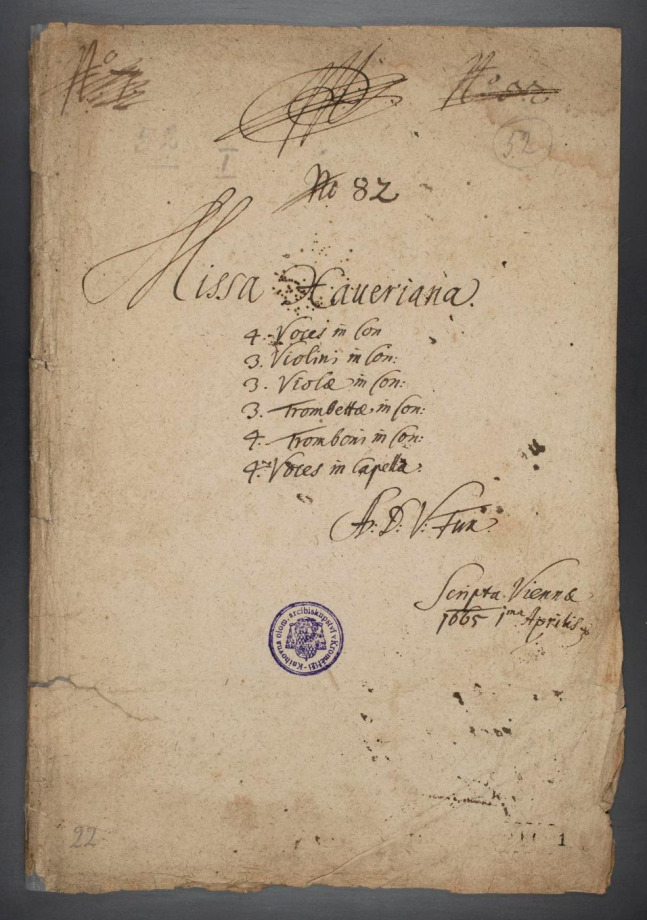 No
No
52
No 82
Missa Xaveriana.
4. Voces in Con
3. Violini in Con:
3. Violæ in Con:
3. Trombettæ in Con:
4. Tromboni in Con:
4. Voces in Capella.
A: D: V: Fux.
Scripta Viennæ
1665 1ma Aprilis
Knihovna olom. arcibiskupství v Kroměříži
22
1